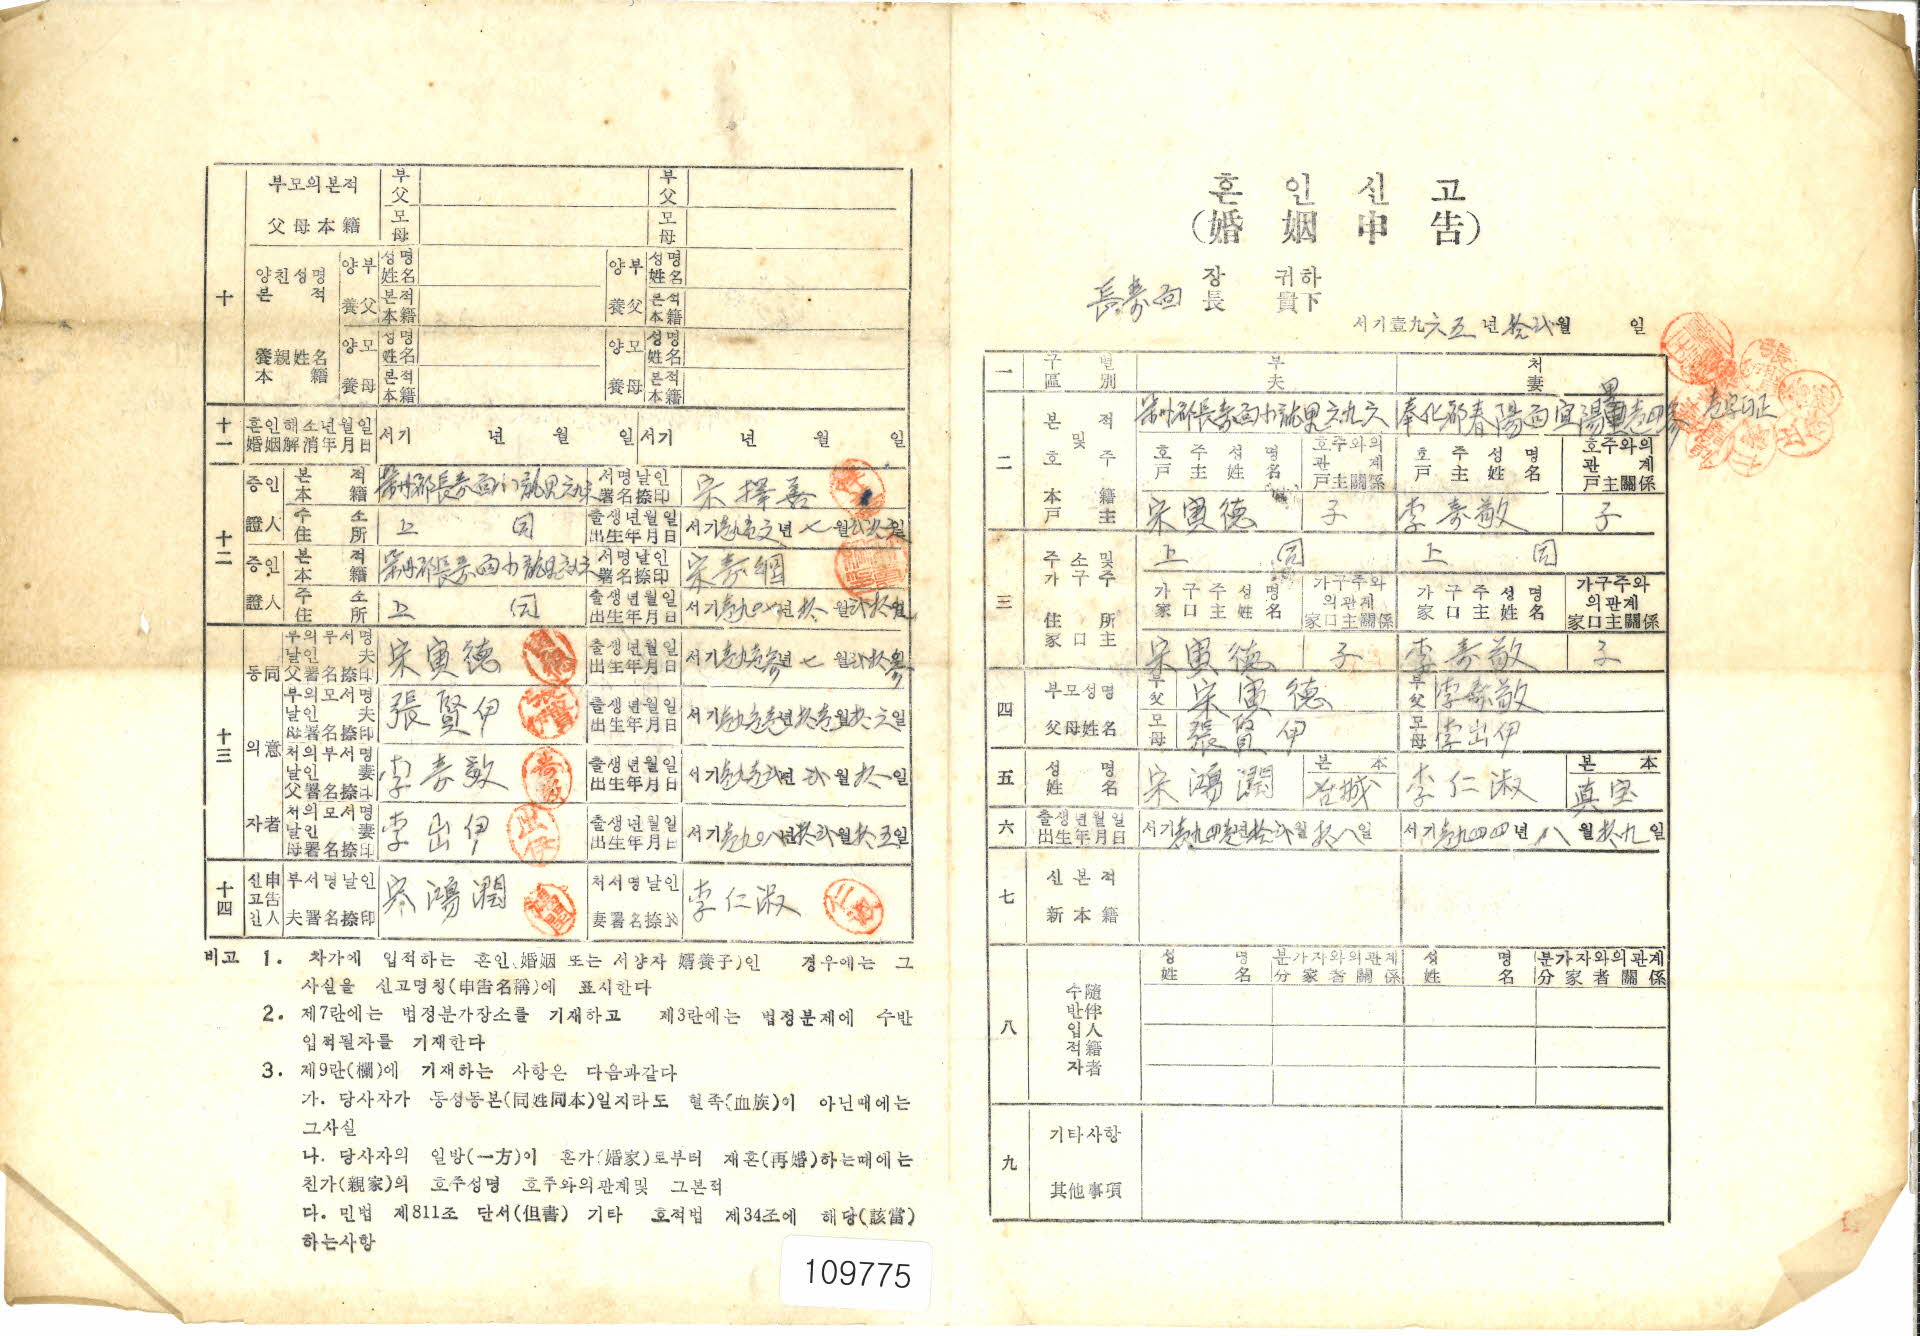 혼인신고
(婚姻申告)
長壽面 장 귀하
長 貴下
서기壹九六五년拾弍월 일
一 구별 부 처
區別 夫 妻
二 본적 및 호주
本籍 戶主
榮州郡長壽面小龍里六九六
奉化郡春陽面宜陽里
壱字訂正
호주성명 호주와의관계 호주성명 호주와의관계
戸主姓名 戸主關係 戸主姓名 戸主關係
宋寅德 子 李壽敬 子
三 주소및가구주
住所 家口主
上 同 上 同
가구주성명 가구주와의관계 가구주성명 가구주와의관계
家口主姓名 家口主關係 家口主姓名 家口主關係
宋寅德 子 李壽敬 子
四 부모성명 부 宋寅德 부 李壽敬
父母姓名 父 父
모 張賢伊 모 李出伊
母 母
五 성명 宋鴻潤 본 李仁淑 본본
姓名 冶城 真宝
六 출생년월일 서기壱九四壱년拾弍월拾八일 서기壱九四四년八월拾九일
出生年月日
七 신본적
新本籍
八 수반입적자
隨伴入籍者
성명 분가자와의관계 성명 분가자와의관계
姓名 分家者關係 姓名 分家者關係
九 기타사항
其他事項
十 부모의본적 부 부
父 父
父母本籍 모 모
母 母
양친성명 양부 성명 양부 성명
본적 姓名 姓名
養父 본적 養父 본적
本籍 本籍
養親姓名 양모 성명 양모 성명
本籍 姓名 姓名
養母 본적 養母 본적
本籍 本籍
十一 혼인해소년월일 서기 년 월 일 서기 년 월 일
婚姻解消年月日
十二 증인 본적 서명날인 宋擇善
本籍 署名捺印
證人 주소 上 同 출생년월일
住所 出生年月日
증인 본적 서명날인 宋壽綱
本籍 署名捺印
證人 주소 上 同 출생년월일
住所 出生年月日
十三 동의자
同意者
부의부서명날인 宋寅德 출생년월일
夫父署名捺印 出生年月日
부의모서명날인 張賢伊 출생년월일
夫母署名捺印 出生年月日
처의부서명날인 李壽敬 출생년월일
妻父署名捺印 出生年月日
처의모서명날인 李出伊 출생년월일
妻母署名捺印 出生年月日
十四 신고인 부서명날인 宋鴻潤 처서명날인 李仁淑
申告人 夫署名捺印 妻署名捺印
비고 1. 차가에 입적하는 혼인(婚姻 또는 서양자 婿養子)인 경우에는 그
사실을 신고명칭(申告名稱)에 표시한다
2. 제7란에는 법정분가장소를 기재하고 제3란에는 법정분제에 수반
입적될자를 기재한다
3. 제9란(欄)에 기재하는 사항은 다음과같다
가. 당사자가 동성동본(同姓同本)일지라도 혈족(血族)이 아닌때에는
그사실
나. 당사자의 일방(一方)이 혼가(婚家)로부터 재혼(再婚)하는때에는
친가(親家)의 호주성명 호주와의관계및 그본적
다. 민법 제811조 단서(但書) 기타 호적법 제34조에 해당(該當)
하는사항
109775